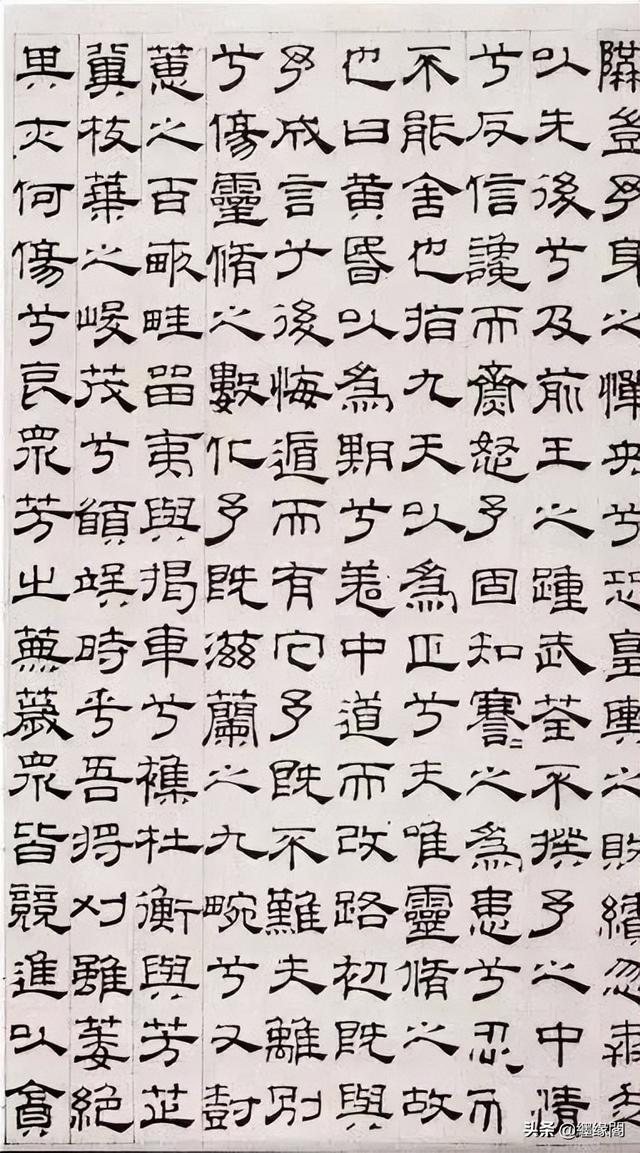 隘豈予身之憚央兮恐皇輿之敗績忽奔走
以先後兮及前王之踵武荃不揆予之中情
兮反信讒而齌怒予固知謇〻之為患兮忍而
不能舍也指九天以為正兮夫唯靈脩之故
也曰黃昏以為期兮羌中道而改路初既與
予成言兮後悔遁而有它予既不難夫離別
兮傷靈脩之數化予既滋蘭之九畹兮又樹
蕙之百畝畦留夷與揭車兮雜杜衡與芳芷
冀枝葉之峻茂兮願竢時乎吾將刈雖萎絕
其亦何傷兮哀眾芳之蕪薉眾皆競進以貪
头条